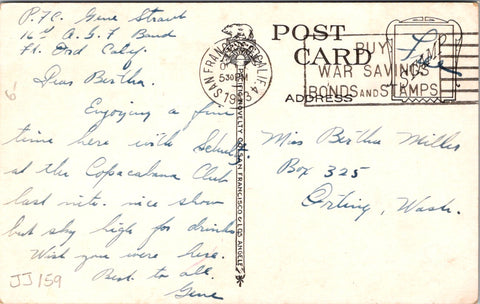 P.F.C. Gene Straub
16th A.S.F Band
Ft. Ord Caly.
Dear Bertha.
Enjoying a fine
time here with Schultz
at the Copacabana Club
last nite. nice show
but sky high for drinks
Wish you were here.
Best to all.
Gene
JJ 159
SAN FRANCISCO CALIF. 4
5 30 PM
1943
POST
CARD
ADDRESS
Free
BUY
WAR SAVINGS
BONDS AND STAMPS
NOVELTY CO. SAN FRANCISCO & LOS ANGELES
Miss Bertha Miller
Box 325
Orting, Wash.